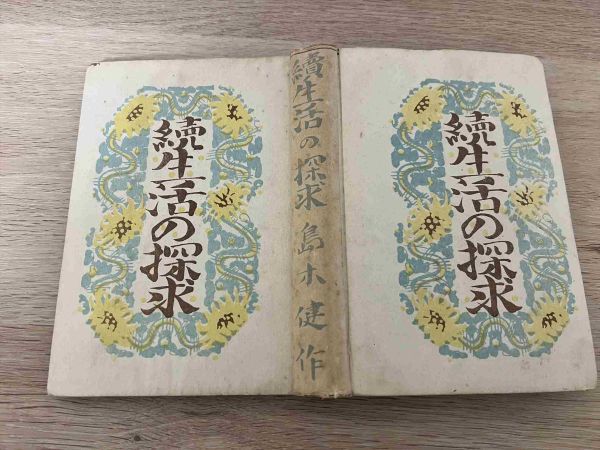 續生活の探求
續生活の探求 島木健作
續生活の探求